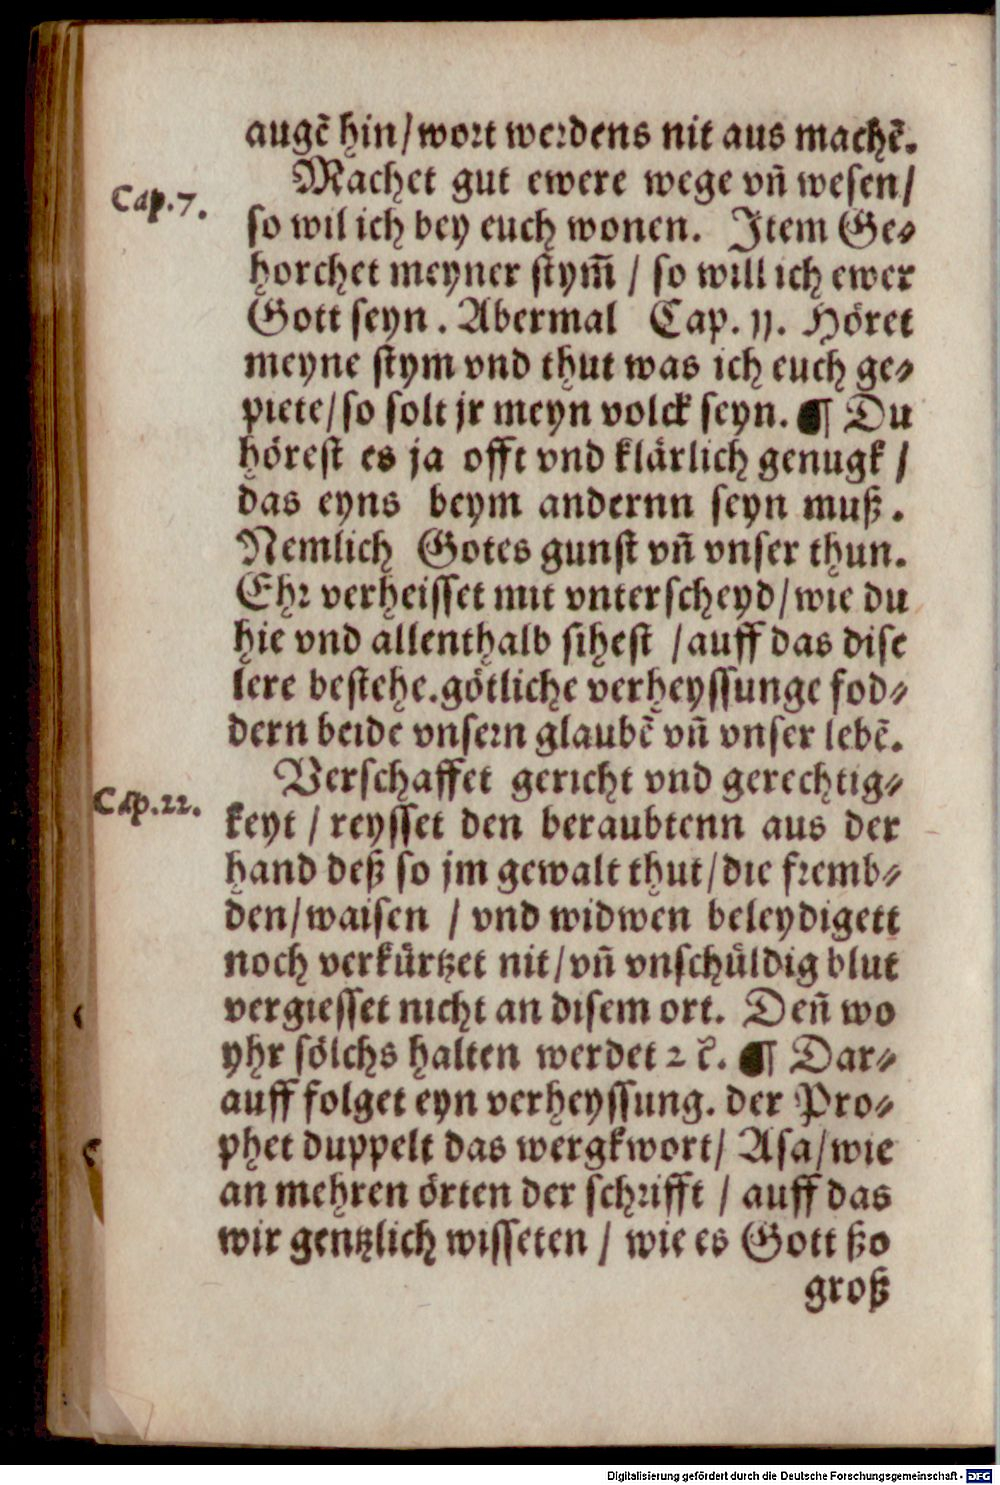 augē hin/wort werdens nit aus machē.
Cap.7.
Machet gut ewere wege vñ wesen/
so wil ich bey euch wonen. Item Ge⸗
horchet meyner stym̄ / so will ich ewer
Gott seyn. Abermal Cap. 11. Höret
meyne stym vnd thut was ich euch ge⸗
piete/so solt jr meyn volck seyn. ¶ Du
hörest es ja offt vnd klärlich genugk /
das eyns beym andernn seyn muß.
Nemlich Gotes gunst vñ vnser thun.
Ehr verheisset mit vnterscheyd/wie du
hie vnd allenthalb sihest /auff das dise
lere bestehe.götliche verheyssunge fod⸗
dern beide vnsern glaubē vñ vnser lebē.
Cap.22.
Verschaffet gericht vnd gerechtig⸗
keyt / reysset den beraubtenn aus der
hand deß so jm gewalt thut/die fremb⸗
den/waisen / vnd widwen beleydigett
noch verkürtzet nit/vñ vnschüldig blut
vergiesset nicht an disem ort. Deñ wo
yhr sölchs halten werdet ⁊c̄. ¶ Dar⸗
auff folget eyn verheyssung. der Pro⸗
phet duppelt das wergkwort/ Asa/wie
an mehren örten der schrifft / auff das
wir gentzlich wisseten / wie es Gott ßo
groß
Digitalisierung gefördert durch die Deutsche Forschungsgemeinschaft - DFG